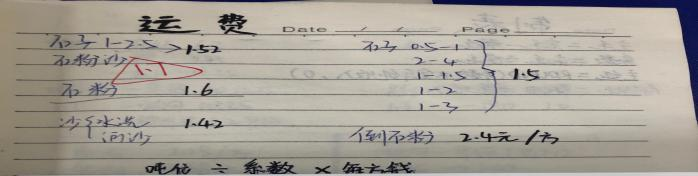 运费
Date / / Page
石子 1-2.5 > 1.52
石粉沙
1.1
石粉 1.6
沙 { 水洗 1.42
河沙
石子 0.5-1
2-4
1-1.5 } 1.5
1-2
1-3
倒石粉 2.4元/方
吨位 ÷ 系数 × 每方钱